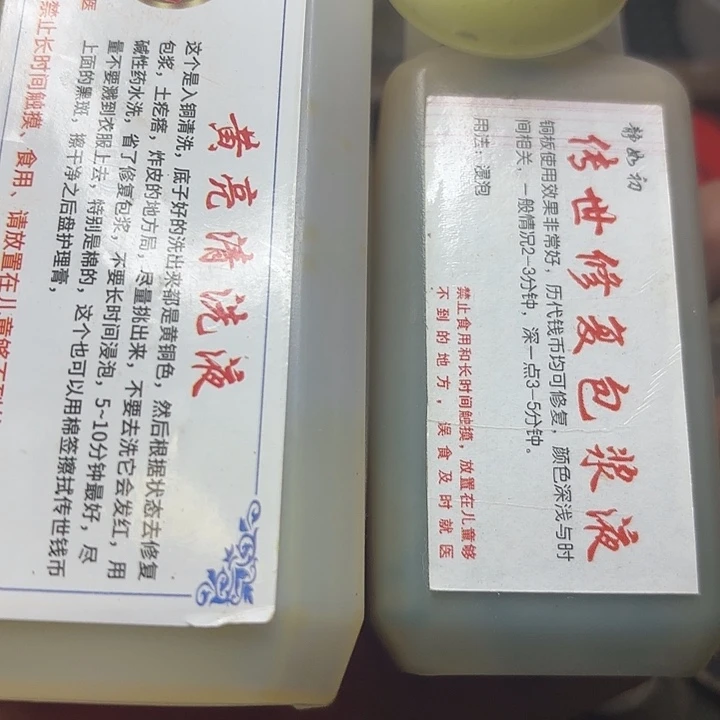 黄亮清洗液
这个是入铜清洗，底子好的洗出来都是黄铜色，然后根据状态去修复
包浆，土疙瘩，炸皮的地方局，尽量挑出来，不要去洗它会发红，用
碱性药水洗，省了修复包浆，不要长时间浸泡，5~10分钟最好，尽
量不要溅到衣服上去，特别是棉的，这个也可以用棉签擦拭传世钱币
上面的黑斑，擦干净之后盘护理膏，
禁止长时间触摸、食用、请放置在儿童够不到
医
静如初
传世修复包浆液
铜板使用效果非常好，历代钱币均可修复，颜色深浅与时
间相关，一般情况2-3分钟，深一点3-5分钟。
用法：浸泡
禁止食用和长时间触摸，放置在儿童够
不到的地方，误食及时就医